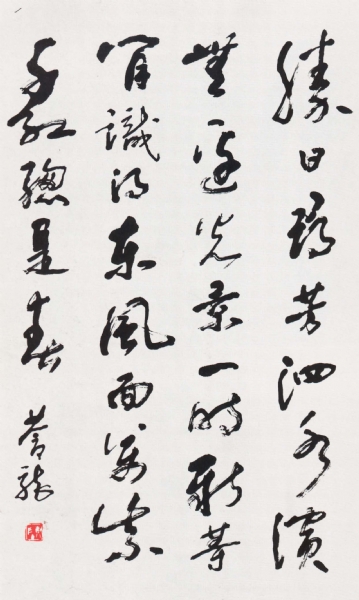 勝日尋芳泗水濱
無邊光景一時新等
閒識得東風面萬紫
千紅總是春